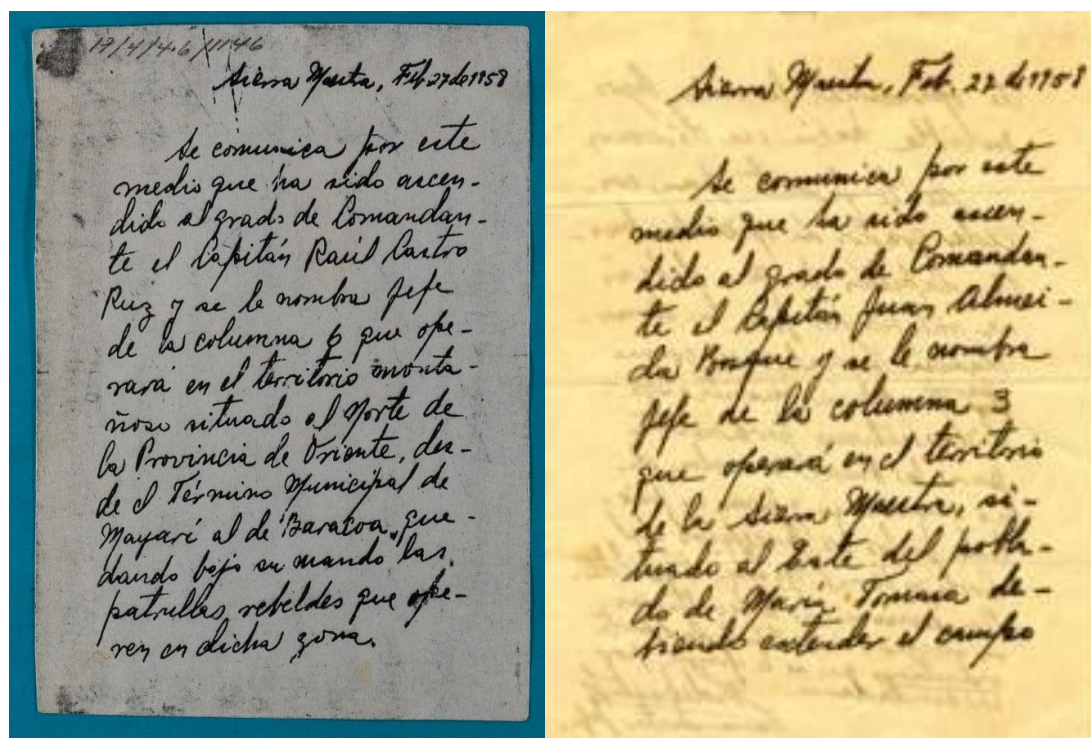 17/4/4.6/1146
Sierra Maestra, Feb 27 de 1958
Se comunica por este
medio que ha sido ascen-
dido al grado de Comandan-
te el Capitán Raúl Castro
Ruz y se le nombra Jefe
de la columna 6 que ope-
rará en el territorio monta-
ñoso situado al Norte de
la Provincia de Oriente, des-
de el Término Municipal de
Mayarí al de Baracoa, que-
dando bajo su mando las
patrullas rebeldes que ope-
ren en dicha zona.
Sierra Maestra, Feb. 27 de 1958
Se comunica por este
medio que ha sido ascen-
dido al grado de Comandan-
te el Capitán Juan Almei-
da Bosque y se le nombra
Jefe de la columna 3
que operará en el territorio
de la Sierra Maestra, si-
tuado al Este del pobla-
do de María Tomasa de-
biendo extender el campo